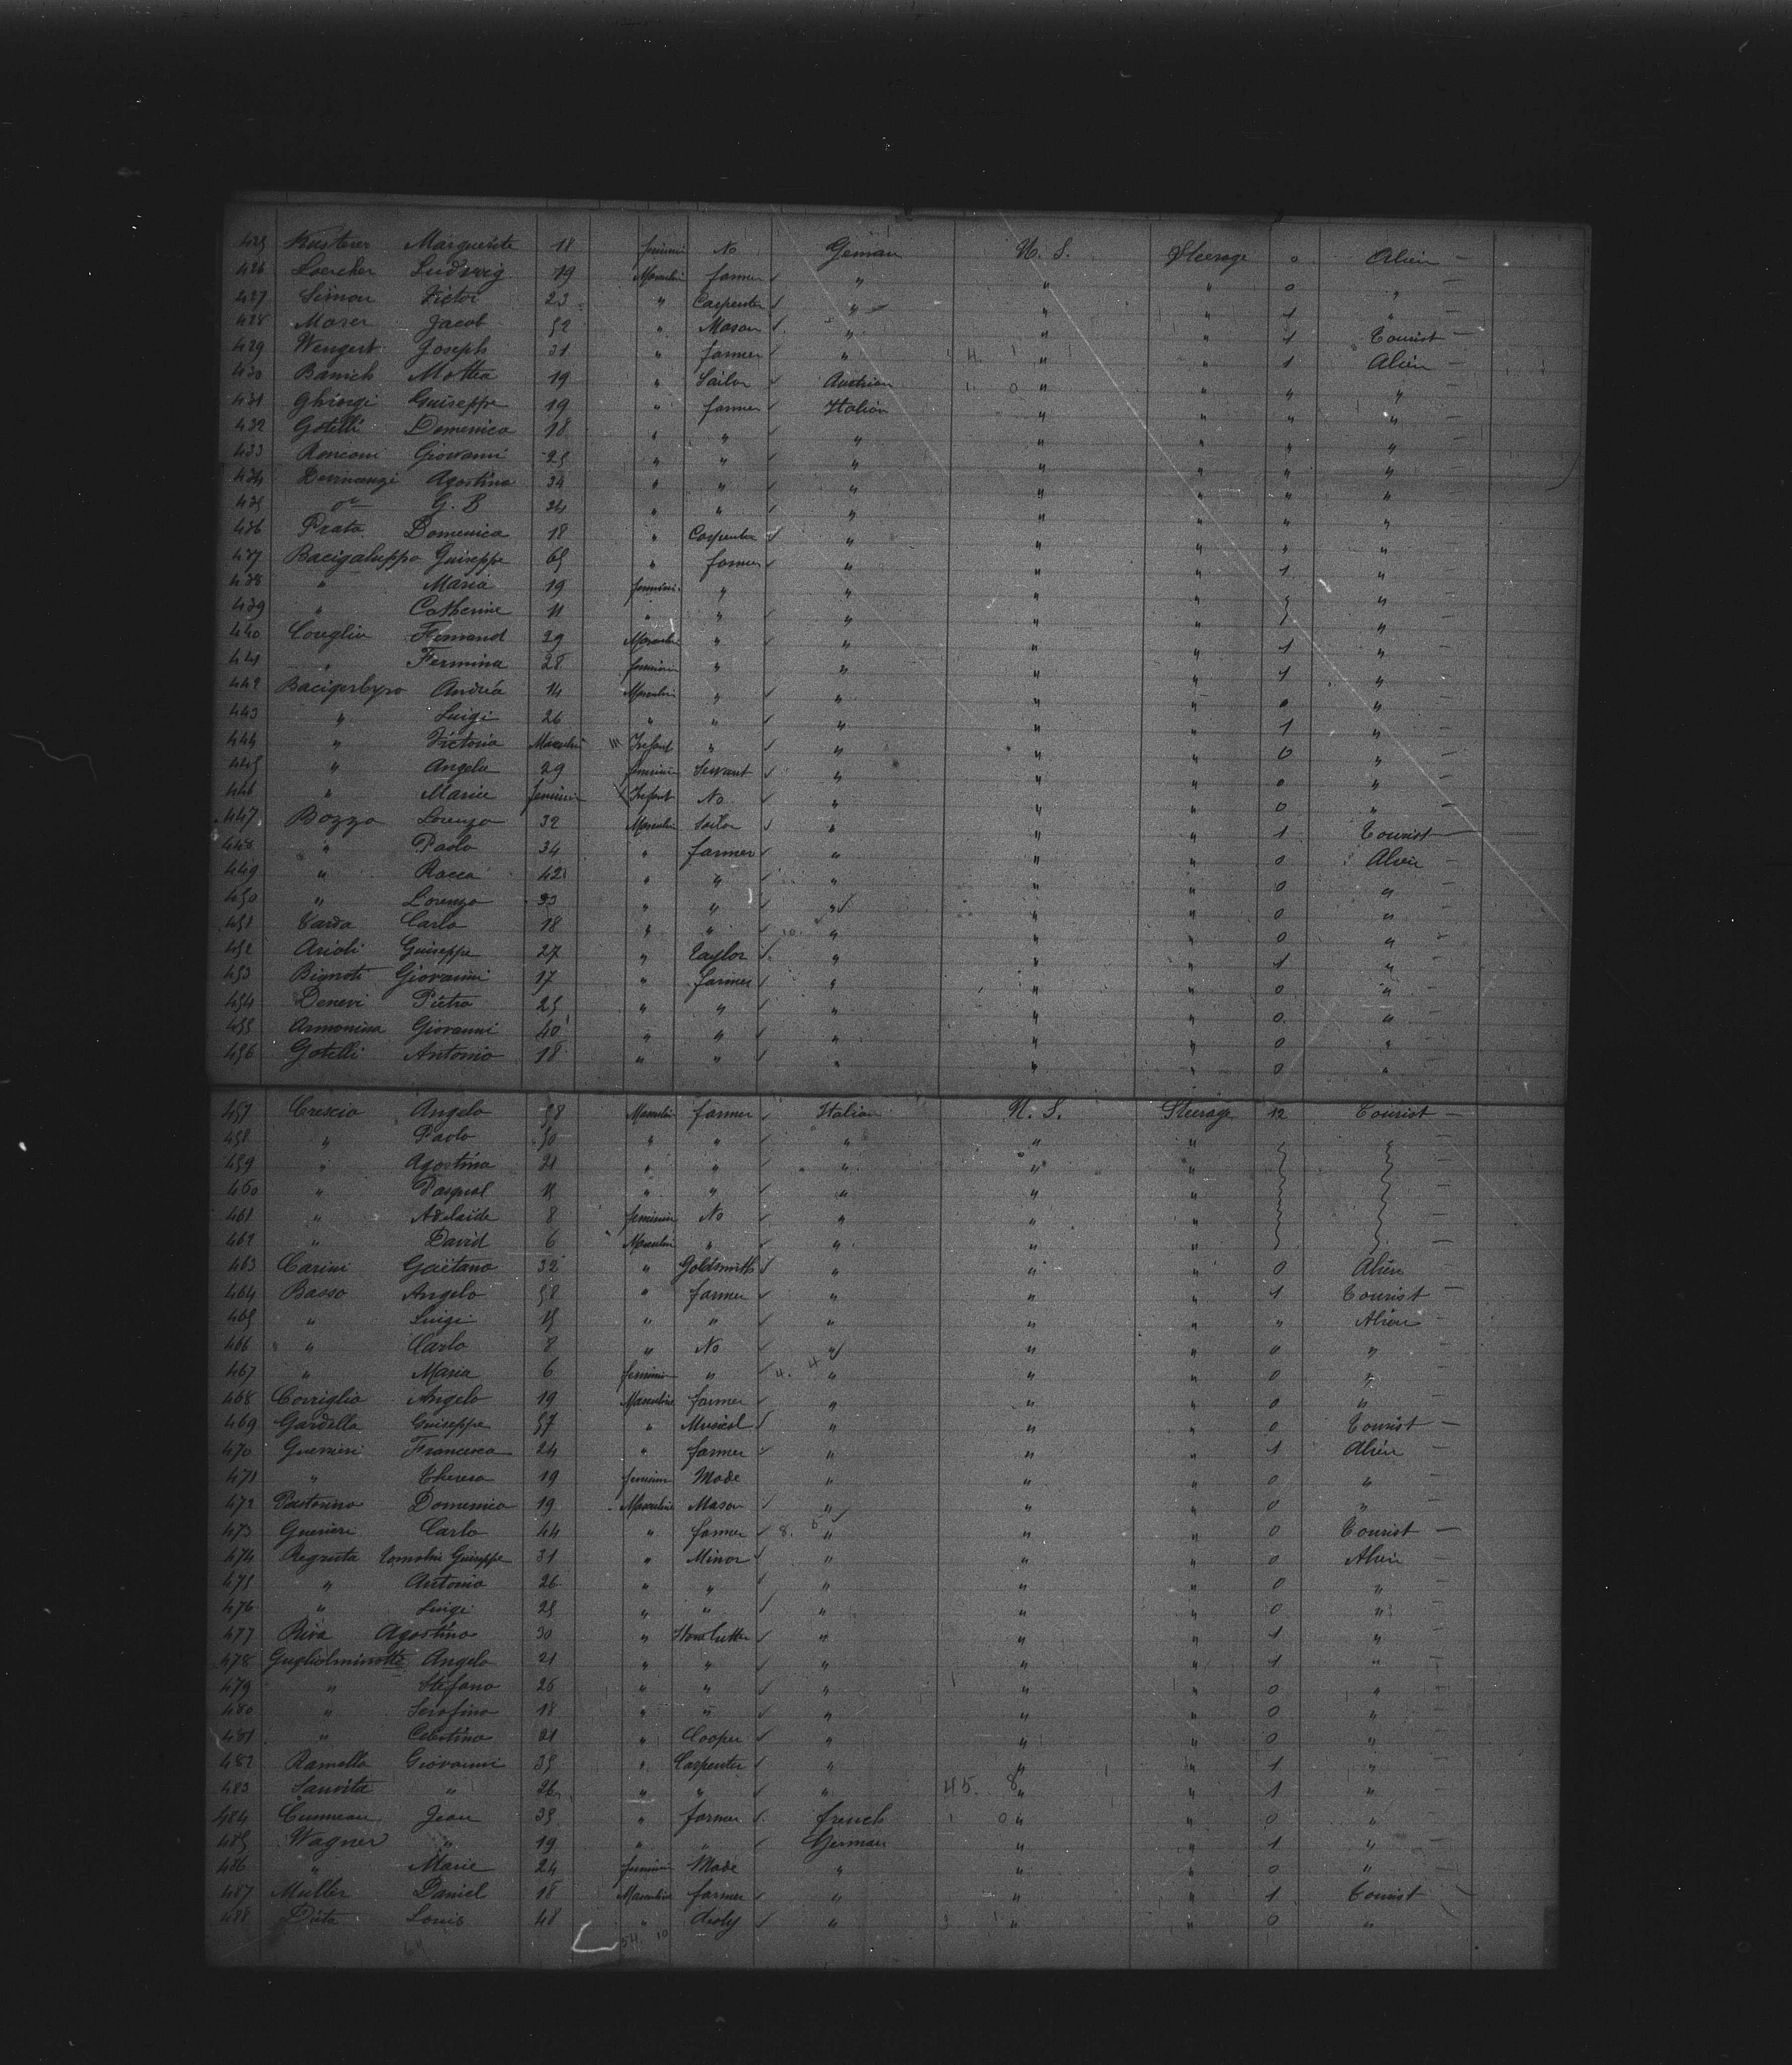 425 Kusterer Marguerite 18 feminin No German U. S. Steerage 0 Alien —
426 Loercher Ludwig 19 Masculin farmer " " " 0 " —
427 Simon Victor 23 " Carpenter " " " 1 " —
428 Moser Jacob 52 " Mason " " " 1 Tourist —
429 Wengert Joseph 31 " farmer " " " 1 Alien —
430 Banich Mattea 19 " Sailor Austrian " " " "
431 Ghiorgi Guiseppe 19 " farmer Italian " " " " —
432 Gotelli Domenico 18 " " " " " " " —
433 Ronconi Giovanni 25 " " " " " " " —
434 Devinanzi Agostino 34 " " " " " " "
435 do G. B 24 " " " " " " "
436 Prato Domenico 18 " Carpenter " " " " "
437 Bacigaluppo Guiseppe 65 " farmer " " " 1 "
438 " Maria 19 feminin " " " " "
439 " Catherine 11 " " " " " "
440 Coneglio Fernand 29 Masculin " " " " 1 " —
441 " Fermina 28 feminin " " " " 1 " —
442 Bacigerlupo Andréa 14 Masculin " " " " 0 " —
443 " Luigi 26 " " " " " 1 " —
444 " Victoria Masculin Infant " " " " 0 " —
445 " Angela 29 feminin Servant " " " 0 " —
446 " Marie feminin Infant No " " " 0 " —
447 Bozzo Lorenzo 32 Masculin Sailor " " " 1 Tourist —
448 " Paolo 34 " farmer " " " 0 Alien —
449 " Rocca 42 " " " " " 0 " —
450 " Lorenzo 33 " " " " " 0 " —
451 Varda Carlo 18 " " " " " 0 "
452 Arioli Guiseppe 27 " Taylor " " " 1 " —
453 Bignoti Giovanni 17 " farmer " " " 0 " —
454 Denevi Pietro 25 " " " " " 0 " —
455 Armonina Giovanni 40 " " " " " 0 " —
456 Gotelli Antonio 18 " " " " " 0 "
457 Crescio Angelo 38 Masculin farmer Italian U. S. Steerage 12 Tourist —
458 " Paolo 50 " " " " " —
459 " Agostina 21 " " " " " —
460 " Pasqual 15 " " " " " —
461 " Adelaide 8 feminin No " " " —
462 " David 6 Masculin " " " " —
463 Carini Gaëtano 32 " Goldsmith " " " 0 Alien
464 Basso Angelo 58 " farmer " " " 1 Tourist —
465 " Luigi 15 " " " " " " Alien —
466 " Carlo 8 " No " " " 0 " —
467 " Maria 6 feminin " " " " 0 "
468 Corriglio Angelo 19 Masculine farmer " " " 0 " —
469 Gardella Guiseppe 57 " Musicel " " " 0 Tourist —
470 Guerrieri Francesco 24 " farmer " " " 1 Alien —
471 " Theresa 19 feminin Mode " " " 0 " —
472 Pastorino Domenico 19 Masculine Mason " " " 0 " —
473 Guerieri Carlo 44 " farmer " " " 0 Tourist —
474 Regruta Guiseppe 31 " Minor " " " 0 Alien —
475 " Antonio 26 " " " " " 0 " —
476 " Luigi 25 " " " " " 0 " —
477 Riva Agostino 30 " " " " 1 " —
478 Guglielminotti Angelo 21 " " " " " 1 " —
479 " Stefano 26 " " " " " 0 " —
480 " Serafino 18 " " " " " 0 " —
481 " Celestino 21 " Cooper " " " 0 "
482 Ramella Giovanni 35 " Carpenter " " " 1 "
483 Sanvita " 26 " " " 45. 8 " " 1 "
484 Cumeau Jean 35 " farmer french " " 0 "
485 Wagner " 19 " " German " " 1 " —
486 " Marie 24 feminin Mode " " " 0 " —
487 Muller Daniel 18 Masculine farmer " " " 1 Tourist —
488 Louis 48 " " " " 0 "
54. 10